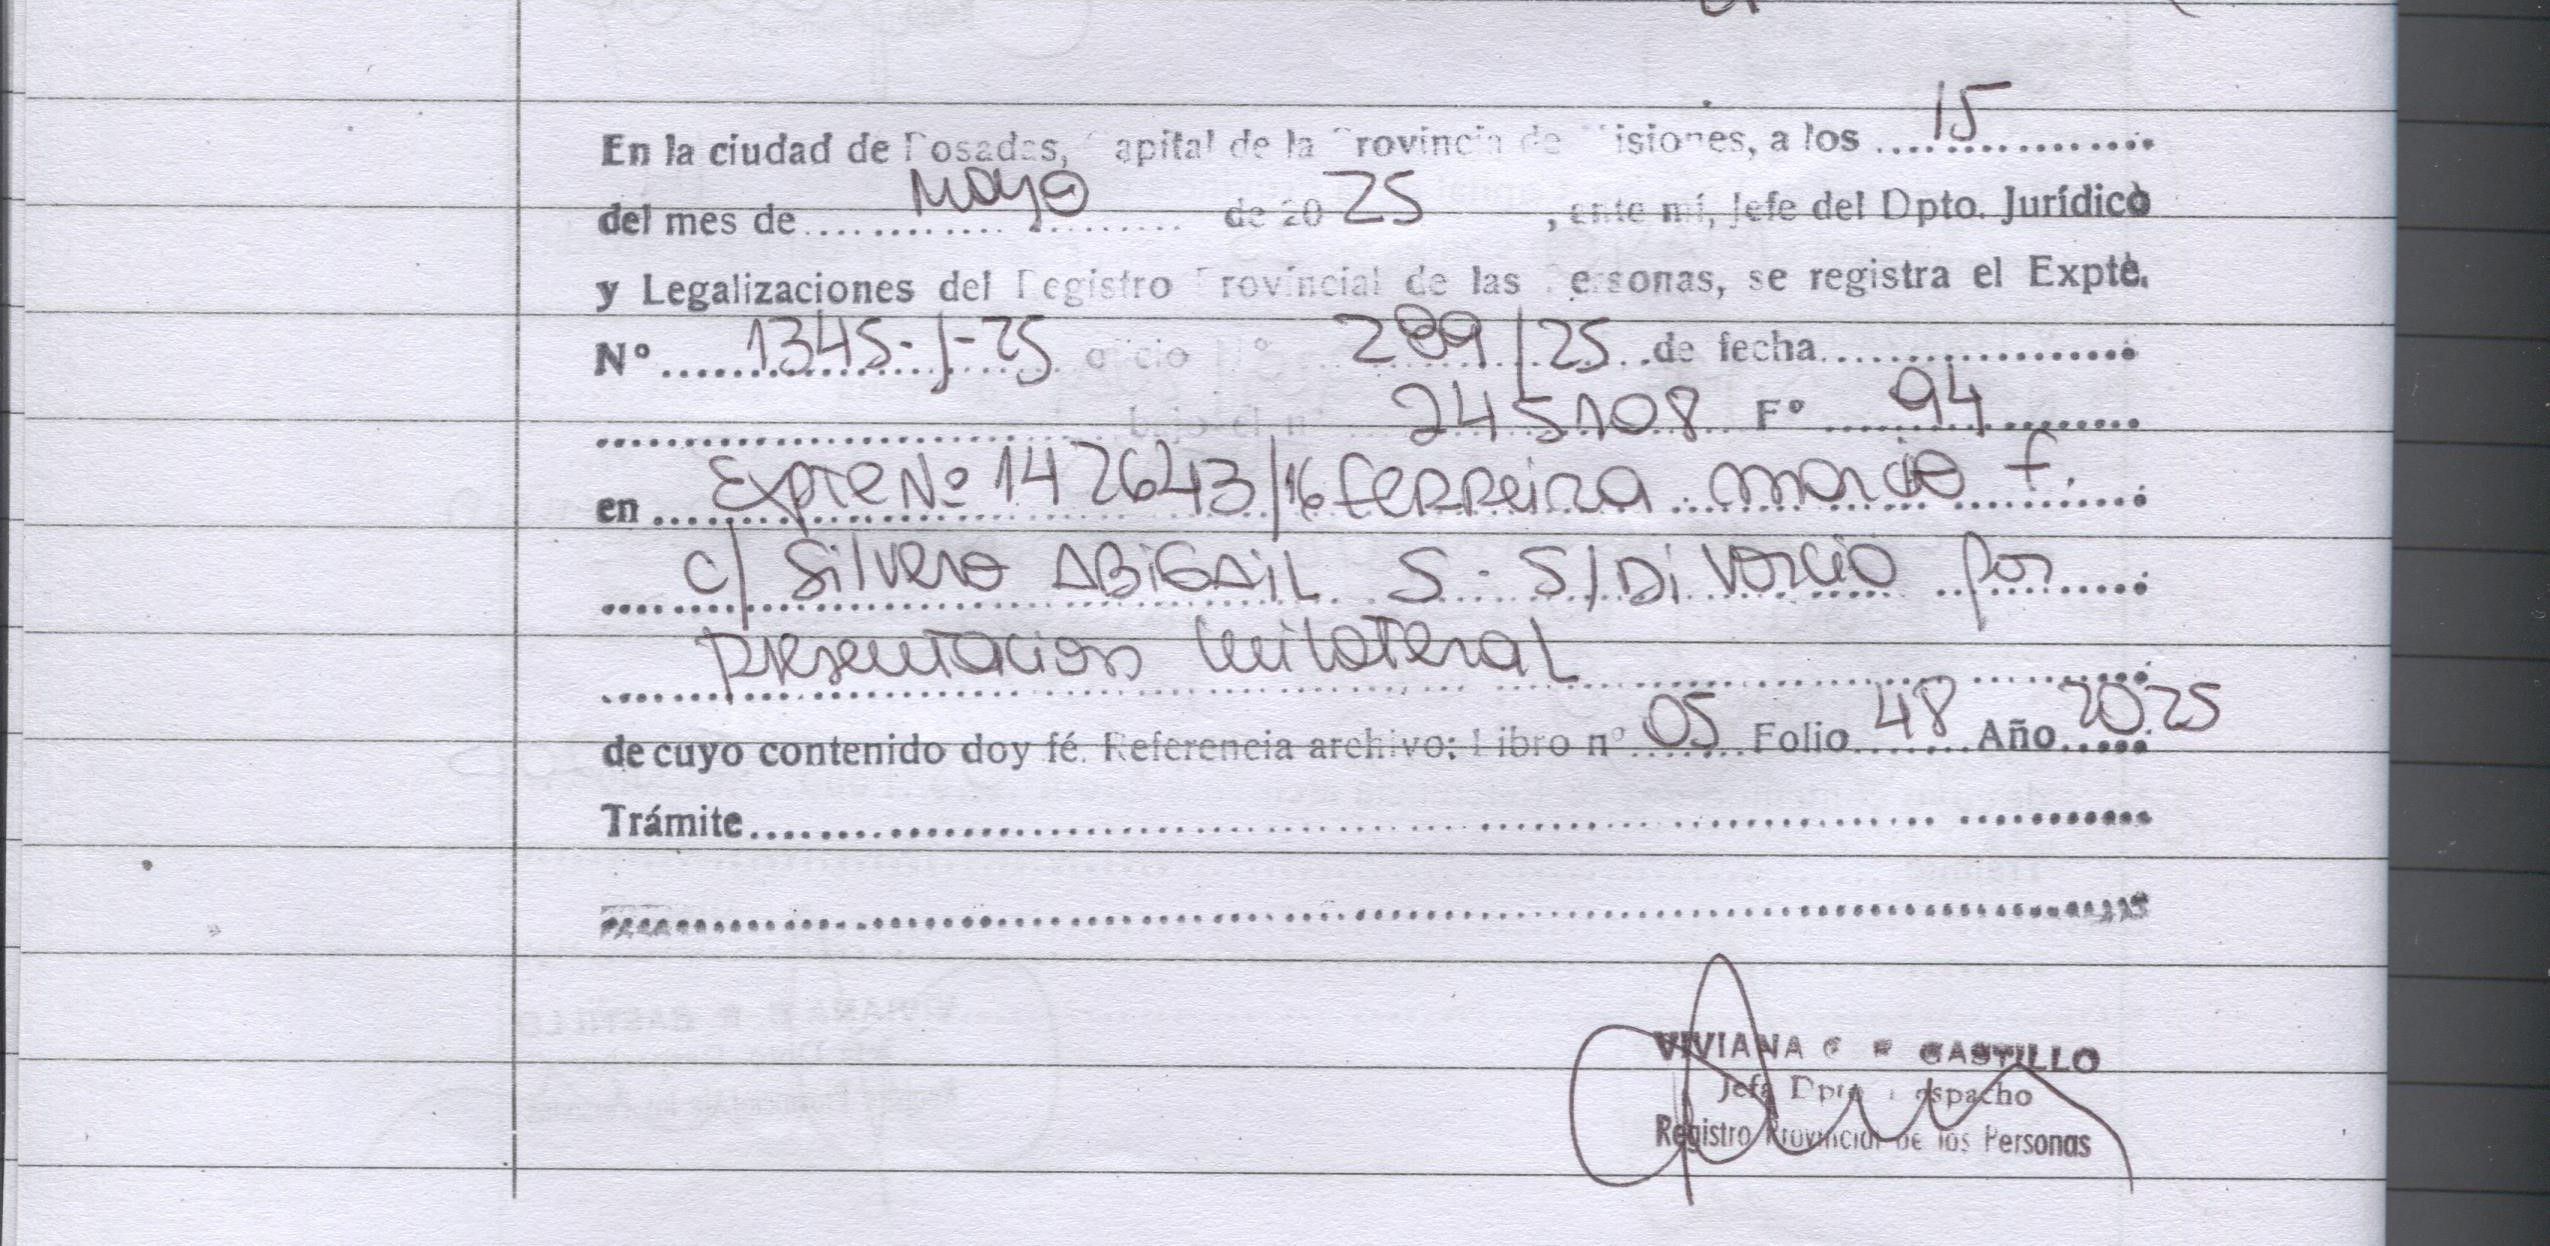 En la ciudad de Posadas, Capital de la Provincia de Misiones, a los 15
del mes de Mayo de 2025, ante mí, Jefe del Dpto. Jurídico
y Legalizaciones del Registro Provincial de las Personas, se registra el Expte.
Nº 1345-J-25 oficio Nº 289/25 de fecha
bajo el nº 245108 Fº 94
en Expte Nº 142643/16 Ferreira F.
c/ Silvero ABiGAiL S. S/Divorcio por
presentacion unilateral
de cuyo contenido doy fé. Referencia archivo: Libro nº 05 Folio 48 Año 2025
Trámite
VIVIANA CASTILLO
Jefa Dpto Despacho
Registro Provincial de las Personas